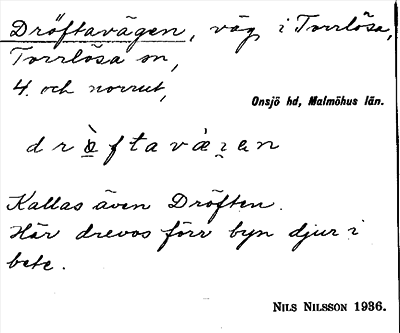 Dröftavägen, väg i Torrlösa,
Torrlösa sn,
4. och norrut,
Onsjö hd, Malmöhus län.
Kallas även Dröften.
Här drevos förr byn djur i
bete.
NILS NILSSON 1936.